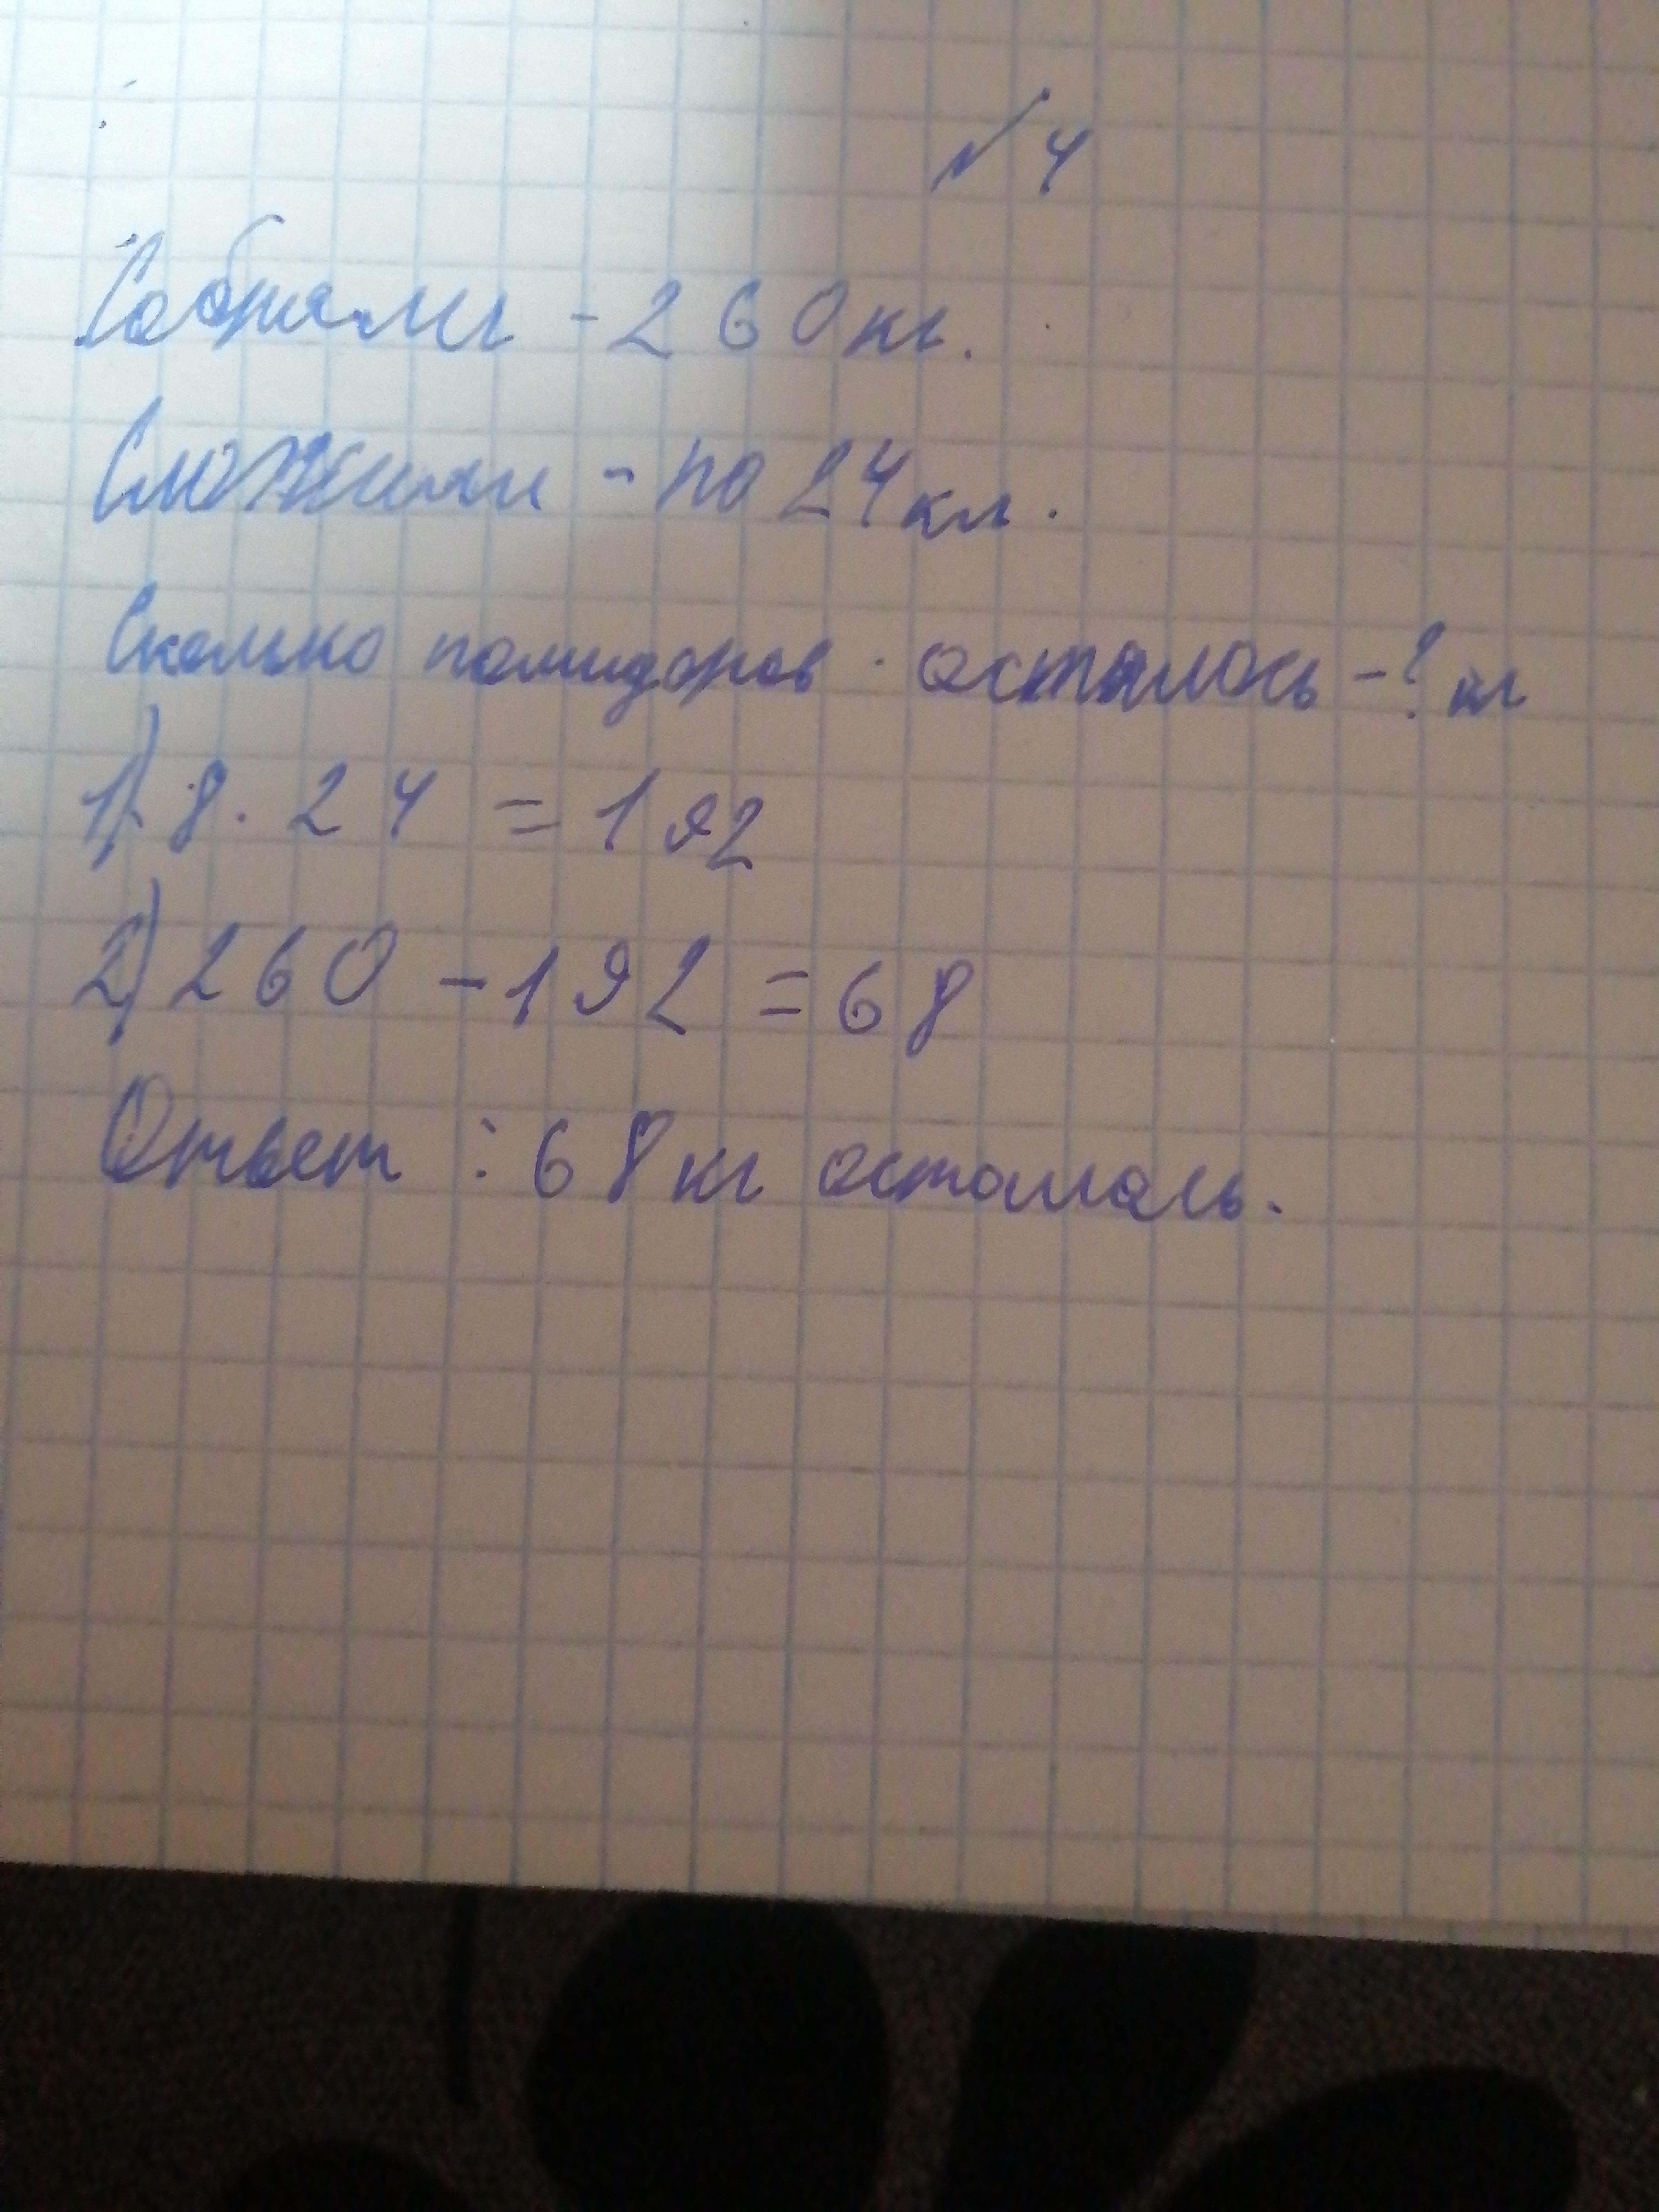 № 4
Собрали - 260 кг.
Сложили - по 24 кг.
Сколько помидоров осталось - ? кг
1) 8 · 24 = 192
2) 260 - 192 = 68
Ответ : 68 кг осталось.